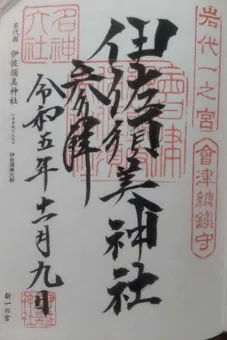 岩代一之宮
會津總鎮守
伊佐須美神社
参拝
令和五年十一月九日
名神大社
岩代国 伊佐須美神社
新一の宮